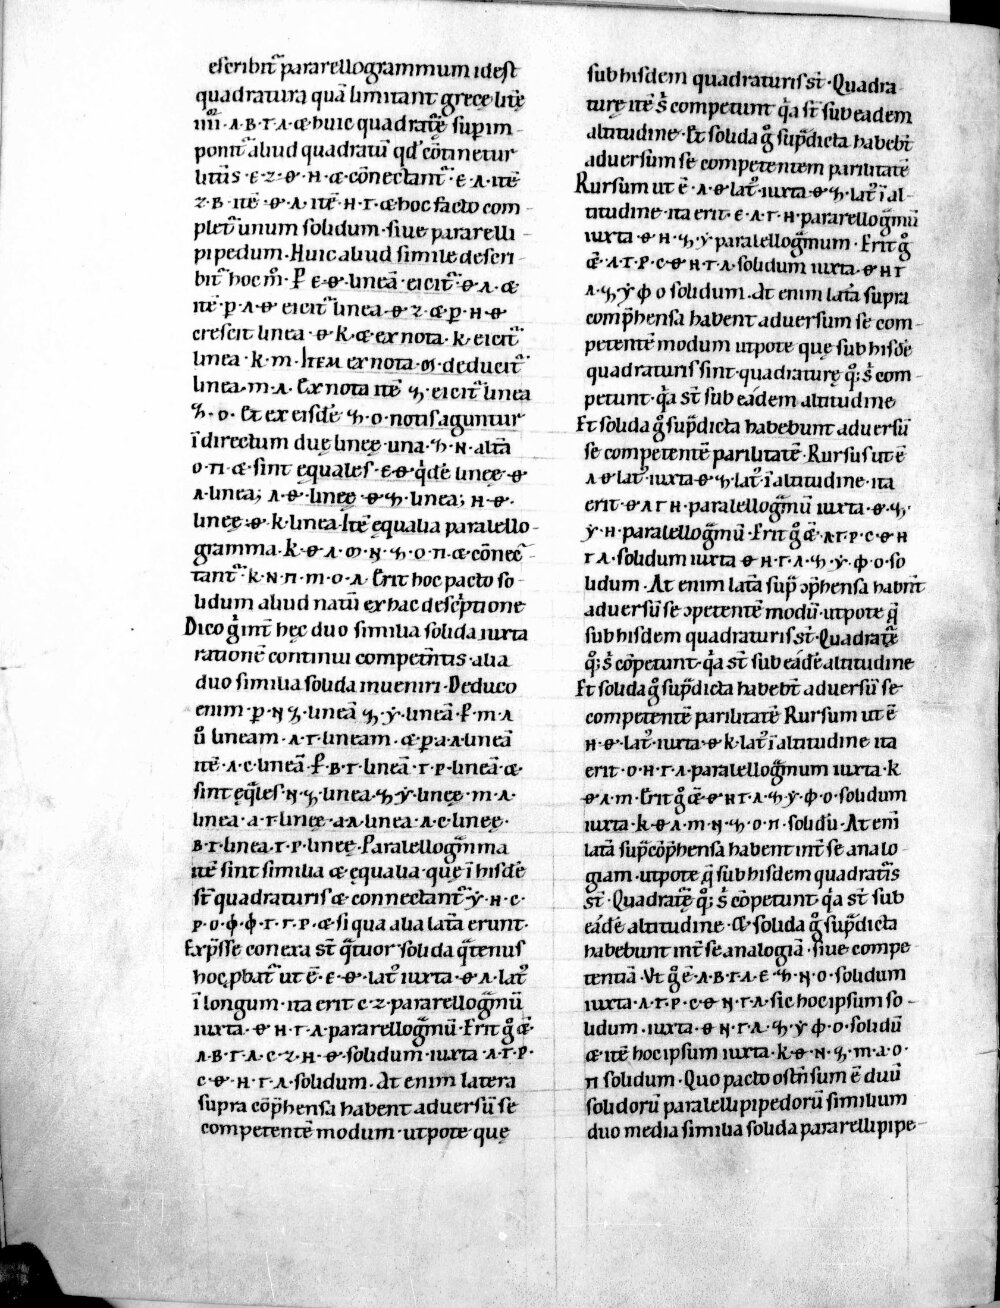 escribit᷑ pararellogrammum idest
quadratura quā limitant grecę litę̄
iiiior · ʌ · B · Γ · λ · & huic quadratę̄ supim-
ponit᷑ aliud quadratū qd' cōtinetur
littis · E · Z · Θ · H · & cōnectant᷑ · E · λ · itē
Z · B · itē · Θ · λ · itē · H · Γ · & hoc facto com-
plet᷑ unum solidum · siue pararelli-
pipedum . Huic aliud simile descri-
bit᷑ hoc mº . P E · Θ · lineā · eicit᷑ · Θ · λ · &
itē · P · λ · Θ · eicit᷑ linea · Θ · Z · & P · H · Θ
crescit linea · Θ · K · & ex nota · K · eicit᷑
linea · K · M · Item ex nota · deducit᷑
linea · M · λ · Ex nota itē ϟ · eicit᷑ linea
ϟ · O · Et ex eisdē ϟ · O · notis aguntur
ī directum duę lineę · una · ϟ · N · altā
O · Π · & sint ęquales · E · Θ · q̇dē lineę · Θ
λ · linea; λ · Θ · lineę · Θ · ϟ · linea; H · Θ ·
lineę · Θ · K · linea · Itē ęqualia paralello-
gramma . K · Θ · λ · M · N · ϟ · O · Π · & cōnec-
tant᷑ · K · N · Π · M · O · λ · Erit hoc pacto so-
lidum aliud natū ex hac desc̓ptione
Dico g̓ int̄ hęc duo similia solida iuxta
rationē continui compet̄ntis · alia
duo similia solida inueniri · Deduco
enim · P · N ϟ · lineā ϟ · Ẏ · lineā · P · M · λ
ů lineam · λ · Γ · lineam · & P · A · λ · lineā
itē · λ · C · lineā · P · B · Γ · lineā · Γ · P · lineā · &
sint ęq̄les · N · ϟ · linea · ϟ · Ẏ · lineę · M · λ ·
linea · A · Γ · lineę · A · λ · linea · λ · C · lineę ·
B · Γ · linea · Γ · P · lineę · Paralellog̃mma
itē sint similia & ęqualia · quę ī hisdē
st̄ quadraturis & connectant᷑ · Ẏ · H · C ·
P · O · Φ · Φ · Γ · Γ · P · & si qua alia lat̄a erunt ·
Exp̄sse conera st̄ q̃tuor solida q̃tenus
hoc ꝓbat᷑ ut ē · E · Θ · latꝰ iuxta · Θ · λ · latꝰ
ī longum · ita erit C · Z · pararellog̃mū
iuxta · Θ · H · Γ · λ pararellog̃mū · Erit g̊ & ·
λ · B · Γ · λ · C · Z · H · Θ · solidum · iuxta · λ · Γ · P ·
C · Θ · H · Γ · λ · solidum . At enim latera
supra cōp̄hensa habent aduersū se
competentē modum · utpote quę
sub hisdem quadraturis st̄ · Quadra-
turę itē s̓ competunt q̓a st̄ sub eadem
altitudine · Et solida g̊ sup̄dicta habeb̄t
aduersum se competentem parilitatē
Rursum ut ē · λ · Θ · latꝰ · iuxta · Θ · ϟ · latꝰ ī al-
titudine · ita erit · E · λ · Γ · H · pararellog̃mū
iuxta · Θ · H · ϟ · Ẏ · paralellog̃mum · Erit g̊
& · λ · Γ · P · C · Θ · H · Γ · λ · solidum iuxta · Θ · H Γ
λ · ϟ · Ẏ Φ O solidum . At enim lat̄a supra
comp̄hensa habent aduersum se com-
petentē modum utpote quę sub hisdē
quadraturis sint · quadraturę q;̊ s̓ com-
petunt · q̓a st̄ sub eádem altitudine
Et solida g̊ sup̄dicta habebunt aduersū
se competentē parilitatē · Rursus ut ē
λ · Θ latꝰ · iuxta · Θ · ϟ · latꝰ · ī altitudine · ita
erit · Θ λ Γ H · pararellog̃mū iuxta · Θ · ϟ ·
Ẏ · H · paralellog̃mū · Erit g̊ & · λ Γ · P · C · Θ H
Γ λ · solidum iuxta Θ · H · Γ · λ · ϟ · Ẏ · Φ · O · so-
lidum · At enim lat̄a sup̃ ɔp̄hensa habn̄t
aduersū se ɔpetentē modū · utpote q̄
sub hisdem quadraturis st̄ · Quadratę̄
q;̊ s̓ cōpetunt · q̓a st̄ sub eádē altitudine
Et solida g̊ sup̄dicta habeb̄t aduersū se
competentē parilitatē Rursum ut ē
H · Θ · latꝰ · iuxta · Θ K · latꝰ ī altitudine ita
erit · O · H · Γ · λ paralellog̃mum iuxta · K
Θ · λ · M · Erit g̊ & · Θ · H Γ · λ · ϟ · Ẏ · Φ · O · solidum
iuxta · K · Θ · λ · M · N · ϟ · O · Π · solidū · At eni᷑
lat̄a sup̃ cōp̄hensa habent int̄ se analo-
giam · utpote q̄ sub hisdem quadrat᷑is
st̄ · Quadratę̄ q;̊ s̓ cōpetunt q̓a st̄ sub
eádē altitudine · & solida g̊ sup̄dicta
habebunt int̄ se analogiā · siue compe-
tentiā · Vt g̊ ē · λ · B · Γ · λ · E · ϟ · N · O · solidum
iuxta · λ · Γ · P · C · Θ · N · Γ · λ · sic hoc ipsum so-
lidum · iuxta · Θ · N · Γ · λ · ϟ · Ẏ Φ · O · solidū
& itē hoc ipsum iuxta · K · Θ · N · ϟ · M · λ · O ·
Π solidum · Quo pacto ost̄nsum ē duū
solidorū paralellipipedorū similium
duo media similia solida pararellipipe-